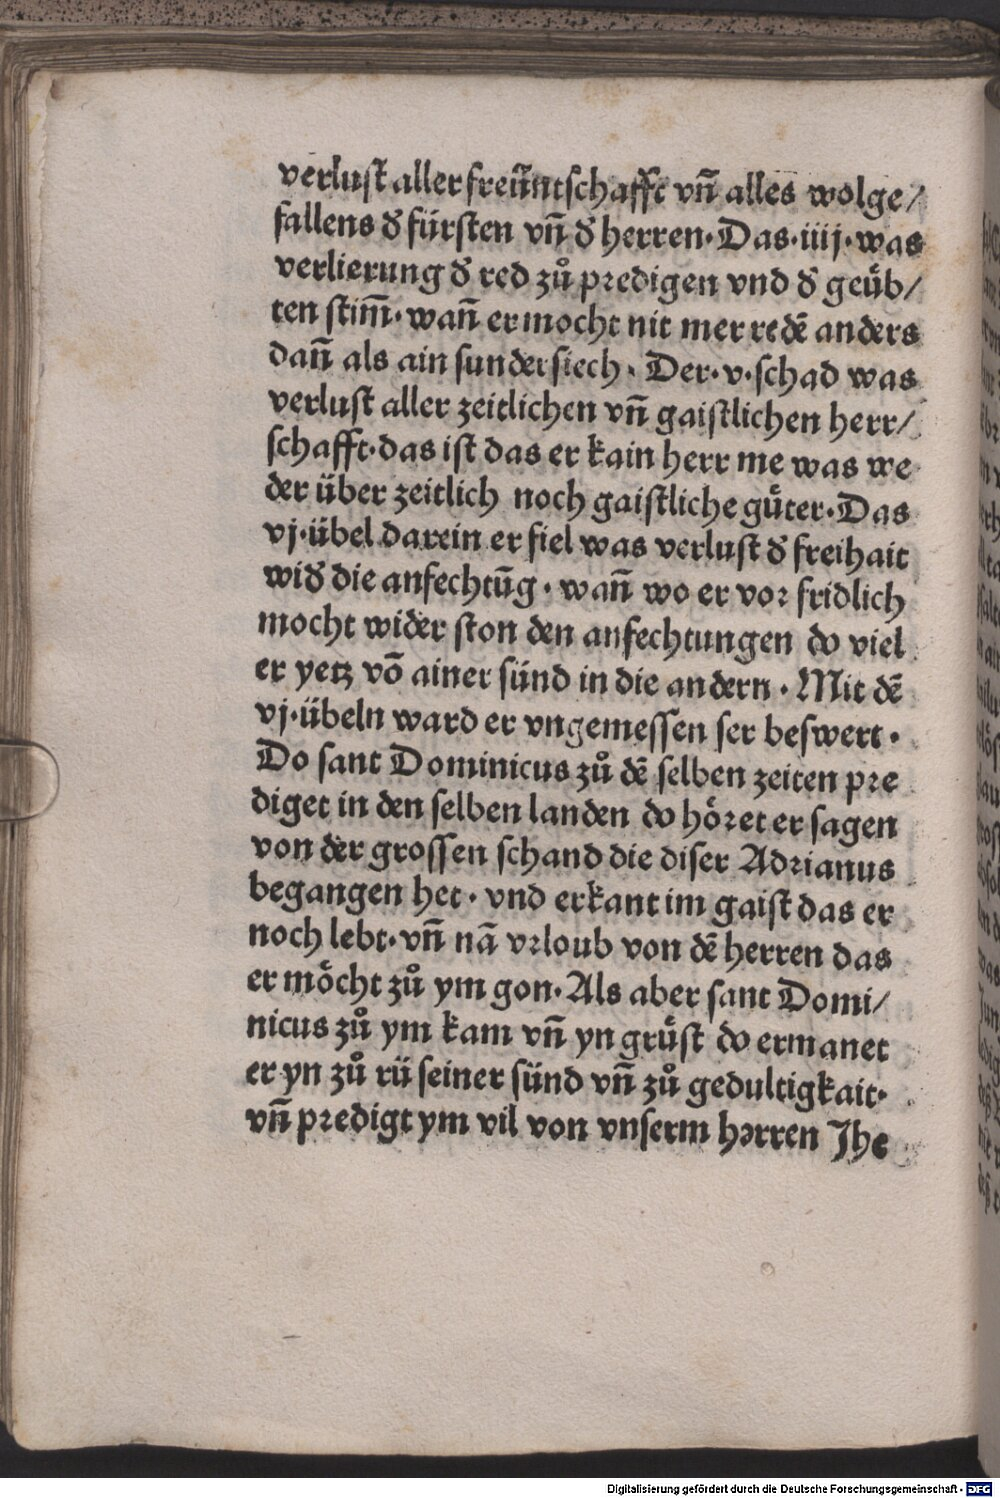 verlust aller freűntschafft vñ alles wolge/
fallens đ fürsten vñ đ herren·Das·iiij·was
verlierung đ red zů predigen vnd đ geuͤb/
ten stim̃·wañ er mocht nit mer redẽ anders
dañ als ain sundersiech· Der·v·schad was
verlust aller zeitlichen vñ gaistlichen herr/
schafft·das ist das er kain herr me was we
der über zeitlich noch gaistliche guͤter·Das
vj·übel darein er fiel was verlust đ freihait
wiđ die anfechtũg·wañ wo er vor fridlich
mocht wider ston den anfechtungen do viel
er yetz võ ainer sünd in die andern·Mit dẽ
vj·übeln ward er vngemessen ser beswert·
Do sant Dominicus zů dẽ selben zeiten pre
diget in den selben landen do hoͤret er sagen
von der grossen schand die diser Adrianus
begangen het·vnd erkant im gaist das er
noch lebt·vñ nã vrloub von dẽ herren das
er moͤcht zů ym gon·Als aber sant Domi/
nicus zů ym kam vñ yn gruͤst do ermanet
er yn zů rü seiner sünd vñ zů gedultigkait·
vñ predigt ym vil von vnserm herren Jhe
Digitalisierung gefördert durch die Deutsche Forschungsgemeinschaft - DFG